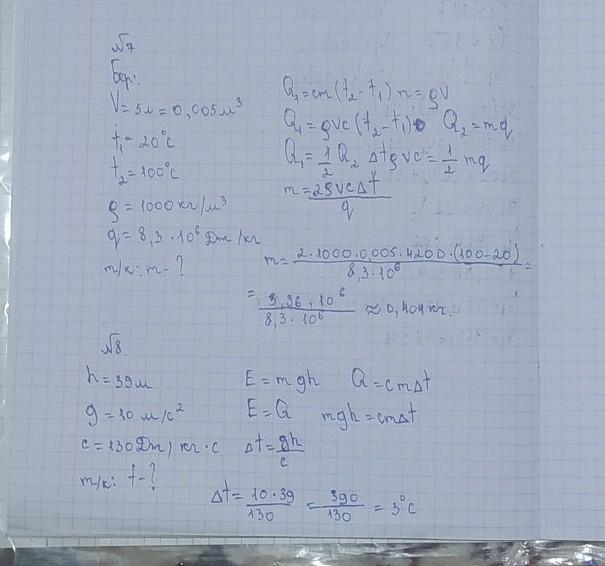 №7
Бер:
V = 5л = 0,005 м³
t₁ = 20°C
t₂ = 100°C
ρ = 1000 кг/м³
q = 8,3 · 10⁶ Дж/кг
т/к: m - ?
Q₁ = cm(t₂ - t₁) m = ρV
Q₁ = ρVc(t₂ - t₁) Q₂ = mq
Q₁ = 1/2 Q₂ Δtρvc = 1/2 mq
m = 2ρvcΔt / q
m = 2·1000·0,005·4200·(100-20) / 8,3·10⁶ =
= 3,36 · 10⁶ / 8,3 · 10⁶ ≈ 0,404 кг.
№8.
h = 39м
g = 10 м/с²
c = 130 Дж/кг·c
т/к: t - ?
E = mgh Q = cmΔt
E = Q mgh = cmΔt
Δt = gh / c
Δt = 10·39 / 130 = 390 / 130 = 3°C